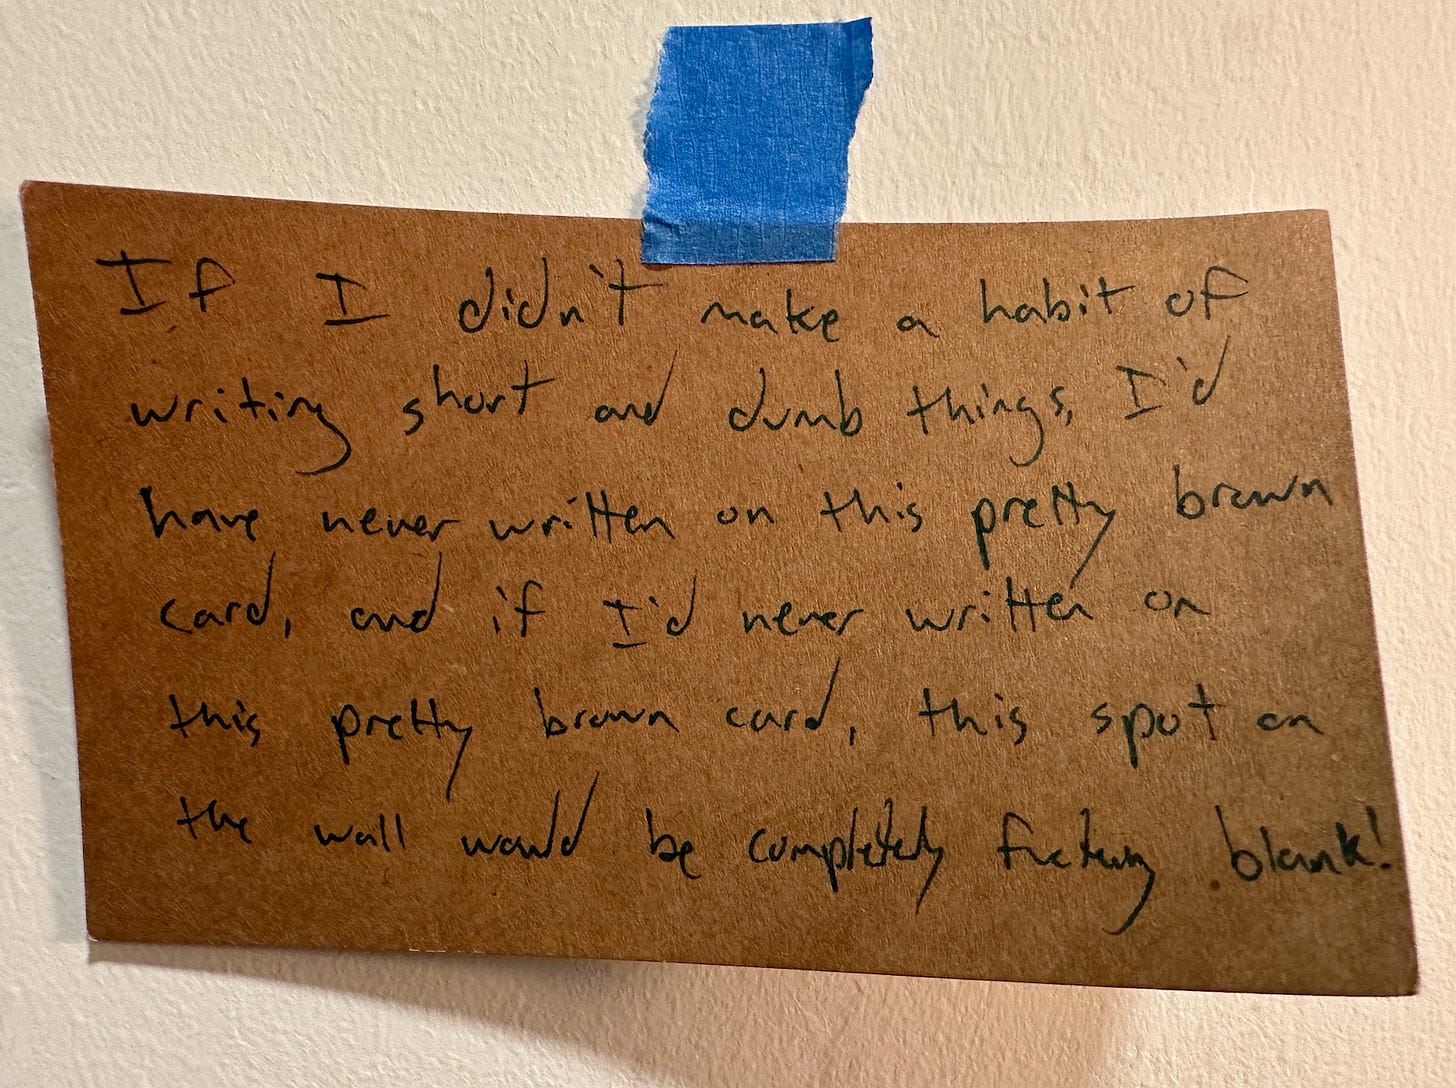 If I didn't make a habit of
writing short and dumb things, I'd
have never written on this pretty brown
card, and if I'd never written on
this pretty brown card, this spot on
the wall would be completely fucking blank!